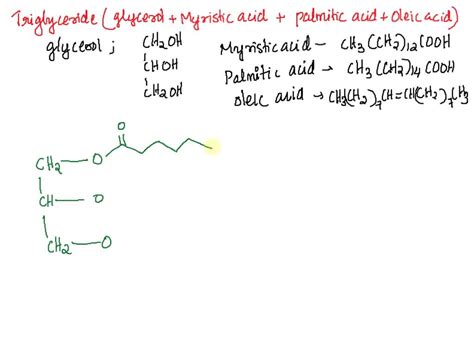 Triglyceride (glycerol + Myristic acid + palmitic acid + Oleic acid)
glycerol ; CH2OH
CHOH
CH2OH
Myristic acid – CH3(CH2)12COOH
Palmitic acid → CH3(CH2)14COOH
oleic acid → CH3(CH2)7CH=CH(CH2)7CH3
O
CH2–O
CH–O
CH2–O